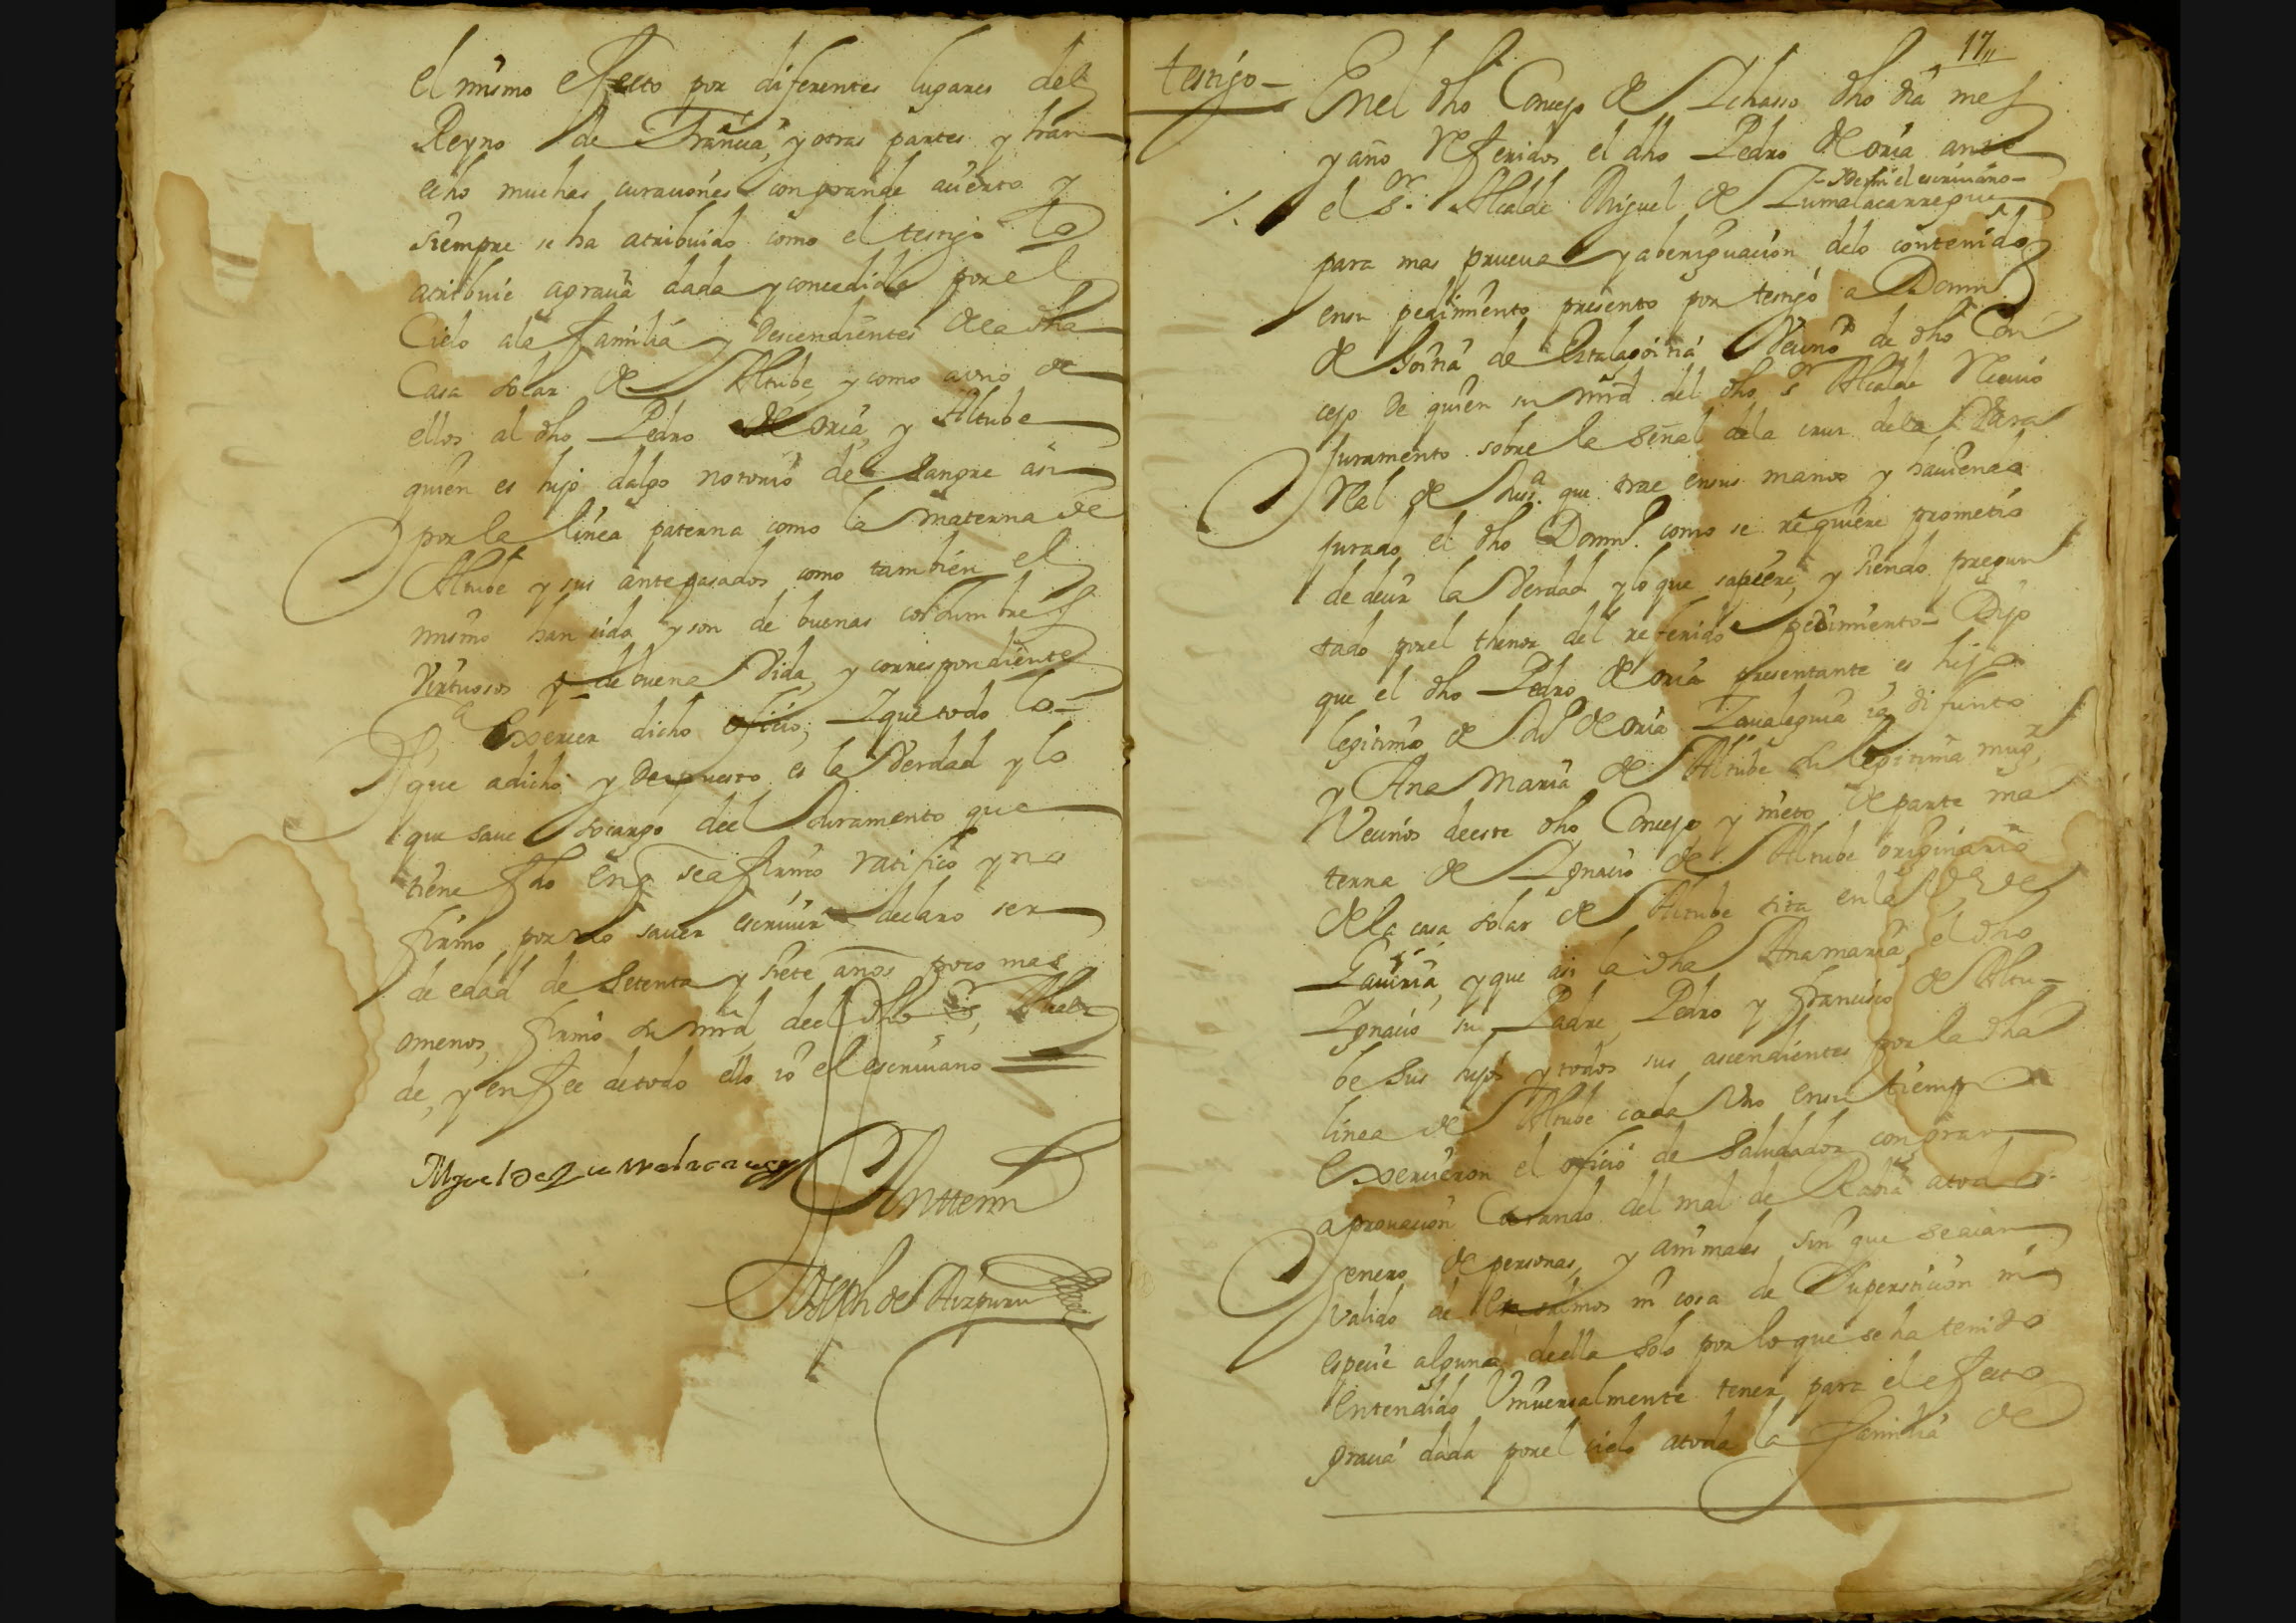 el mismo efecto por diferentes lugares del
Reyno de Françia, y otras partes y han
echo muchas curaciones con grande acierto y
siempre se ha atribuido como el testigo lo
atribuie a graçia dada y concedida por el
Cielo ala familia y Descendientes de la dha
Casa solar de Altube, y como a vno de
ellos al dho Pedro de oria, y Altube
quien es hijo dalgo notorio de sangre asi
por la linea paterna como la materna de
Altube y sus antepasados como tambien el
mismo han sido y son de buenas costumbres
Virtuosos y de buena Vida, y correspondiente
pa Exercer dicho oficio, I que todo lo
que a dicho y Depuesto es la Verdad y lo
que save so cargo del Juramento que
tiene fho en q se afirmo ratifico y no
firmo por no saver escriuir declaro ser
de edad de Setenta y siete años poco mas
omenos, firmo su mrd del dho Sr Alcal
de, y en fee de todo ello io el escriuano
Miguel de Zumalacarregui
Ante mi
Joseph de Aizpuru
17
testigo
En el dho Concejo de Ichaso dho dia mes
y año Referidos el dho Pedro de oria ante
- y de mi el escriuano -
el Sr. Alcalde Miguel de Zumalacarregui
para mas prueua y aberiguacion delo contenido
en su pedimiento presento por testigo a Domin
de Goiria de Vecino de dho Con
cejo De quien su mrd del dho Sr Alcalde Reciuio
Juramento sobre la señal dela cruz dela Vara
Real de Justa. que trae en sus manos y hauiendo
Jurado el dho Domin. como se requiere prometio
de decir la Verdad y lo que supiere, y siendo pregun
tado por el thenor del referido pedimiento Dijo
que el dho Pedro de oria presentante es hijo
legitimo de de oria Zaualeguia ia difunto
y Ana Maria de Altube su legitima muger,
Vecinos de este dho Concejo y nieto de parte ma
terna de Ignacio de Altube originario
de la casa solar de Altube sita en la Va de
Gauiria, y que asi la dha Ana maria, el dho
Ignacio su Padre Pedro y francisco de Altu-
be Sus hijos y todos sus ascendientes por la dha
linea de Altube cada Vno en su tiempo
Exercieron el oficio de Saludador con gran
aprouacion Curando del mal de Rauia a todo
genero de personas, y animales sin que se aian
valido de ni cosa de Supersticion ni
especie alguna de ella solo por lo que se ha tenido
Entendido Vniuersalmente tener para el efecto
graçia dada por el cielo a toda la familia de